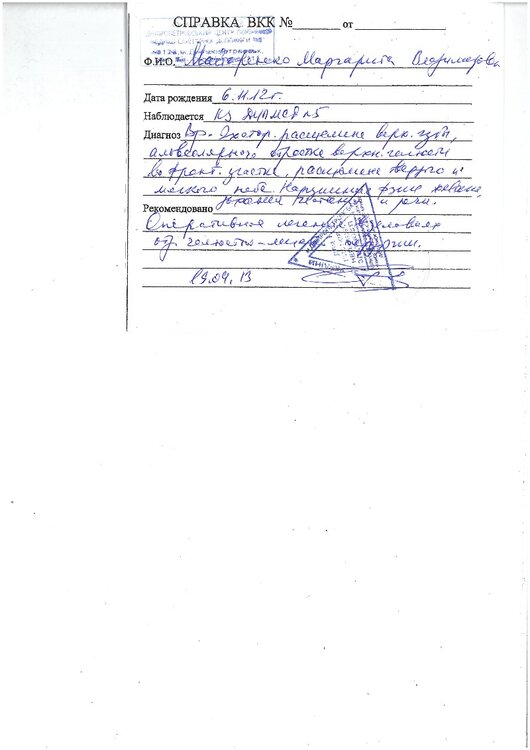 СПРАВКА ВКК № от
Ф.И.О. Маргарита Владимировна
Дата рождения 6.11.12г.
Наблюдается КЗ №5
Диагноз Вр. расщелина верх. губы,
альвеолярного отростка верхн. челюсти
во фронт. участке, расщелина твердого и
мягкого неба. Нарушение функ. жевания,
глотания и речи.
Рекомендовано
Оперативное лечение в условиях
отд. челюстно-лицевой хирургии.
19.04.13